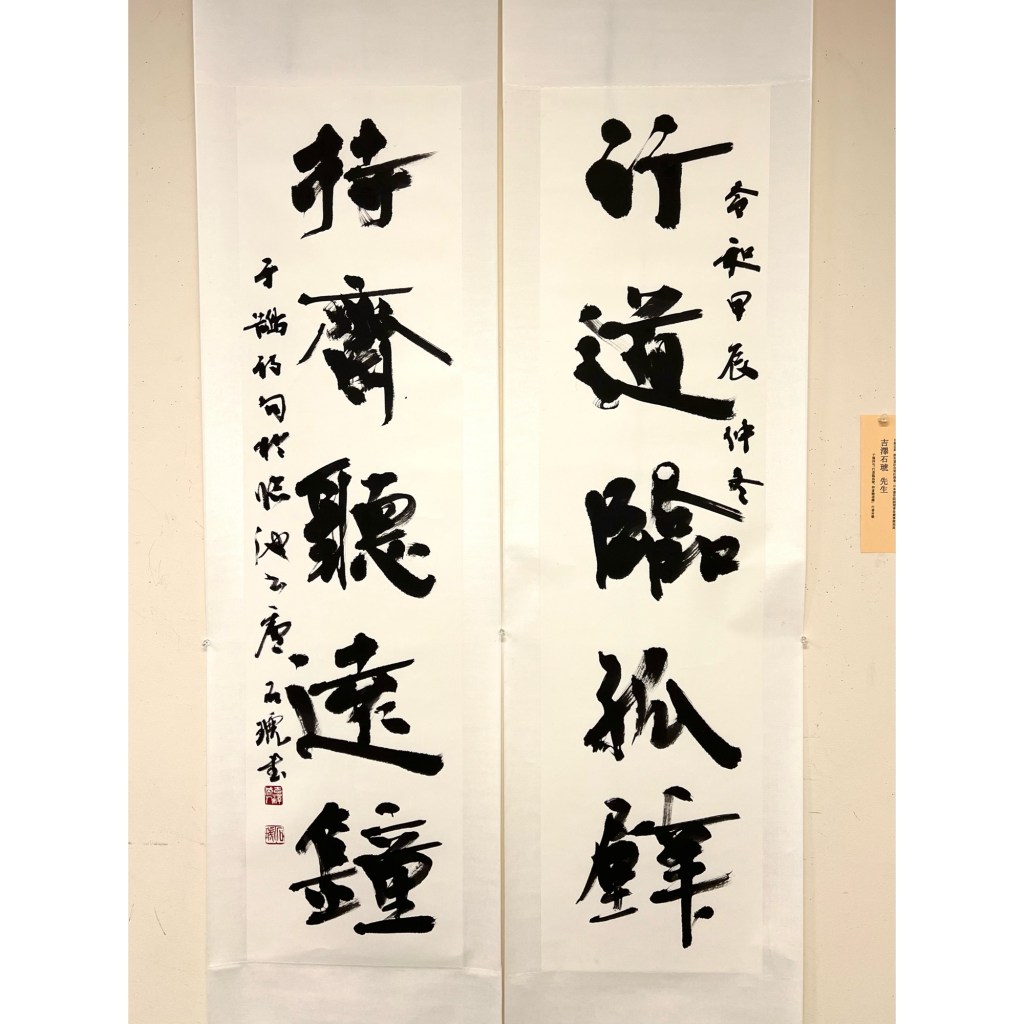 吉澤石琥 先生
令和甲辰仲冬
行道臨孤壁
持齋聽遠鐘
于鵠詩句於臨池 石琥書